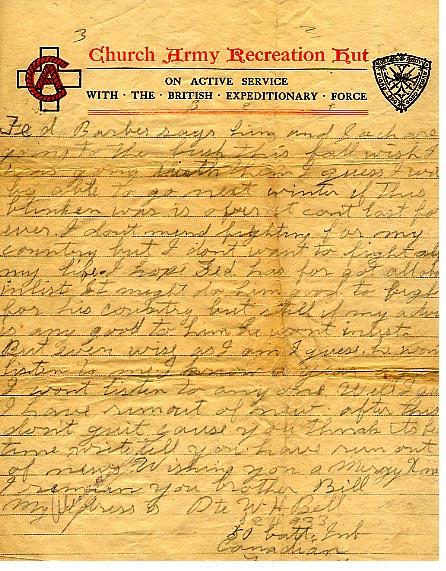 3 2
Church Army Recreation Hut
CA
ON ACTIVE SERVICE
WITH · THE · BRITISH · EXPEDITIONARY · FORCE
B E F
Fed Barber says him and Jack are
going to the bush this fall wish I
was going with them I guess I will
be able to go next winter if this
blinken war is over it cant last for
ever. I dont mend fighting for my
country but I dont want to fight all
my life. I hope Fed has for got all about
inlist. It might do him good to fight
for his country but still if my advice
is any good to him he wont inlist.
But even wise as I am I guess he wont
listen to me I know
I wont listen to any one Well I guess
I have run out of news after this
dont quit cause you think its
time write till you have run out
of news Wishing you a Merry Xmas
I remain you brother Bill
My address is Pte W. H. Bell
50 batt. Inf
Canadian